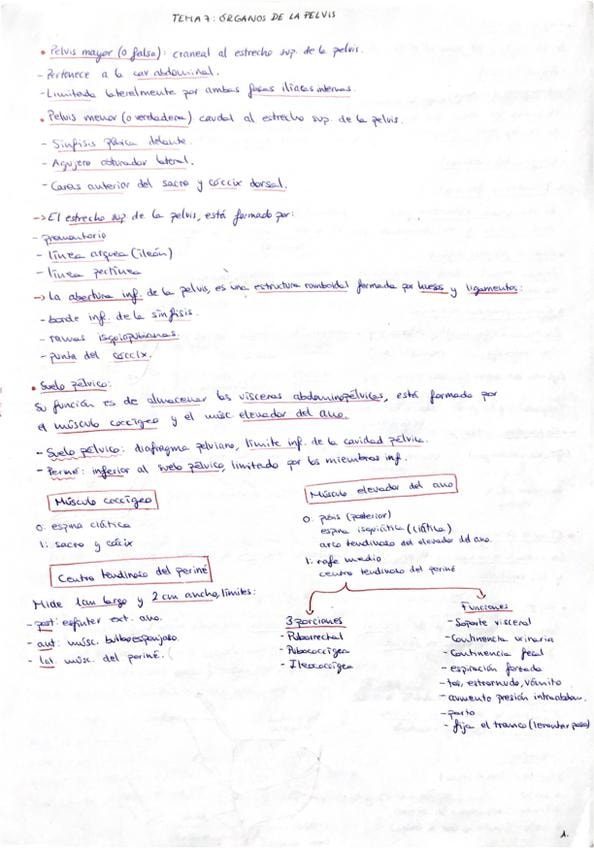 TEMA 7: ÓRGANOS DE LA PELVIS
• Pelvis mayor (o falsa): craneal al estrecho sup. de la pelvis.
- Pertenece a la cav abdominal.
- Limitada lateralmente por ambas fosas iliacas internas.
• Pelvis menor (o verdadera) caudal al estrecho sup. de la pelvis.
- Sínfisis púbica delante.
- Agujero obturador lateral.
- Caras anterior del sacro y cóccix dorsal.
-> El estrecho sup de la pelvis, está formado por:
- promontorio
- línea arquea (ileón)
- línea pectínea
-> La abertura inf. de la pelvis, es una estructura romboidal formada por huesos y ligamentos:
- borde inf. de la sínfisis.
- ramas isquiopubianas.
- punta del cóccix.
• Suelo pélvico:
Su función es de almacenar las vísceras abdominopélvicas, está formado por
el músculo coccígeo y el músc. elevador del ano.
- Suelo pélvico: diafragma pelviano, límite inf. de la cavidad pélvica.
- Periné: inferior al suelo pélvico, limitado por los miembros inf.
Músculo coccígeo
O: espina ciática
I: sacro y cócix
Músculo elevador del ano
O: pubis (posterior)
espina isquiática (ciática)
arco tendinoso del elevador del ano.
I: rafe medio
centro tendinoso del periné
Centro tendinoso del periné
Mide 1cm largo y 2cm ancho, límites:
- post: esfínter ext. ano.
- ant: músc. bulboesponjoso.
- lat. músc. del periné.
3 porciones
- Puborrectal
- Pubococcígea
- Ileococcígea
Funciones
- Soporte visceral
- Continencia urinaria
- Continencia fecal
- espiración forzada
- tos, estornudo, vómito
- aumento presión intraabdom.
- parto
- fija el tronco (levantar peso)
1.